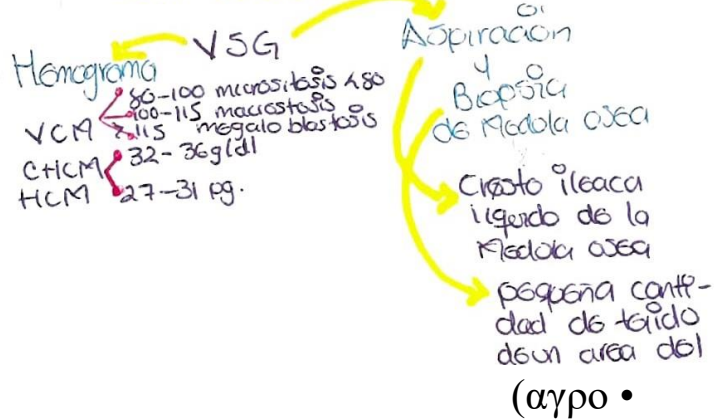 VSG
Hemograma
80-100 micrositosis <80
VCM 100-115 macrostosis
>115 megaloblastosis
CHCM 32-36g/dl
HCM 27-31 pg.
Aspiración
y
Biopsia
de Medola osea
Cresta ileaca
liquido de la
Medola osea
pequeña canti-
dad de tejido
deun area del
(αγρο •